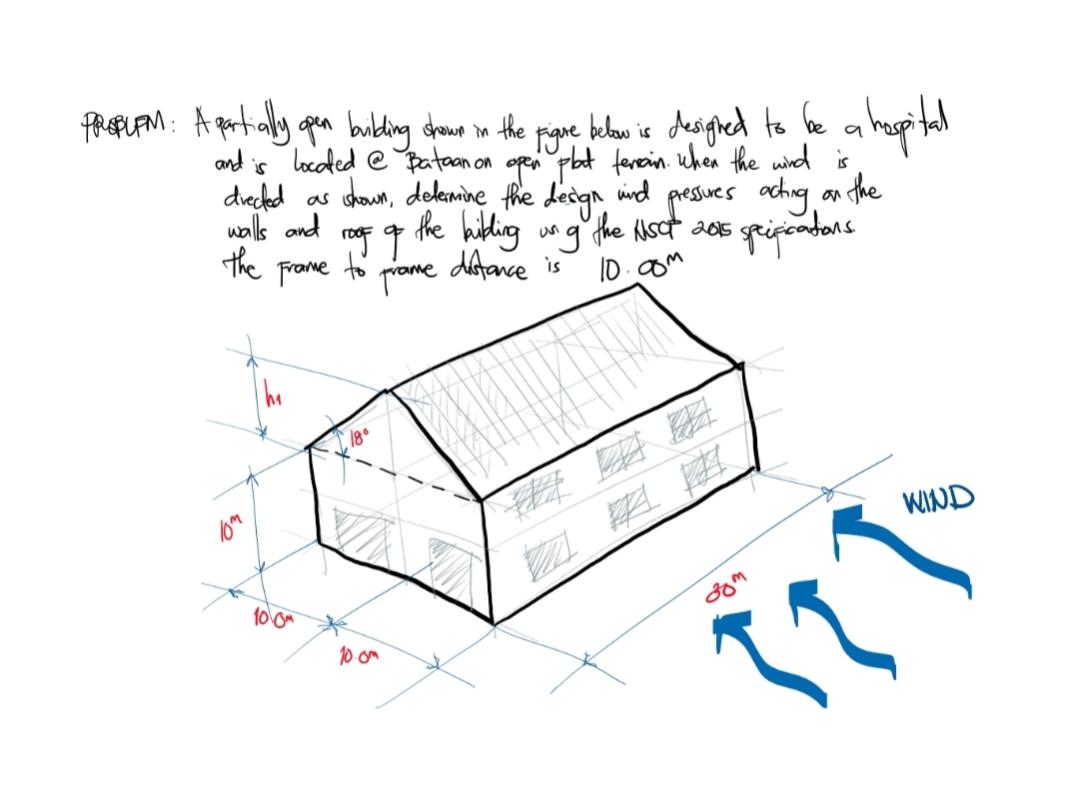 PROBLEM: A partially open building shown in the figure below is designed to be a hospital
and is located @ Bataan on open flat terrain. When the wind is
directed as shown, determine the design wind pressures acting on the
walls and roof of the building using the NSCP 2015 specifications.
The frame to frame distance is 10.00m
h1
18°
10m
WIND
30m
10.0m
10.0m